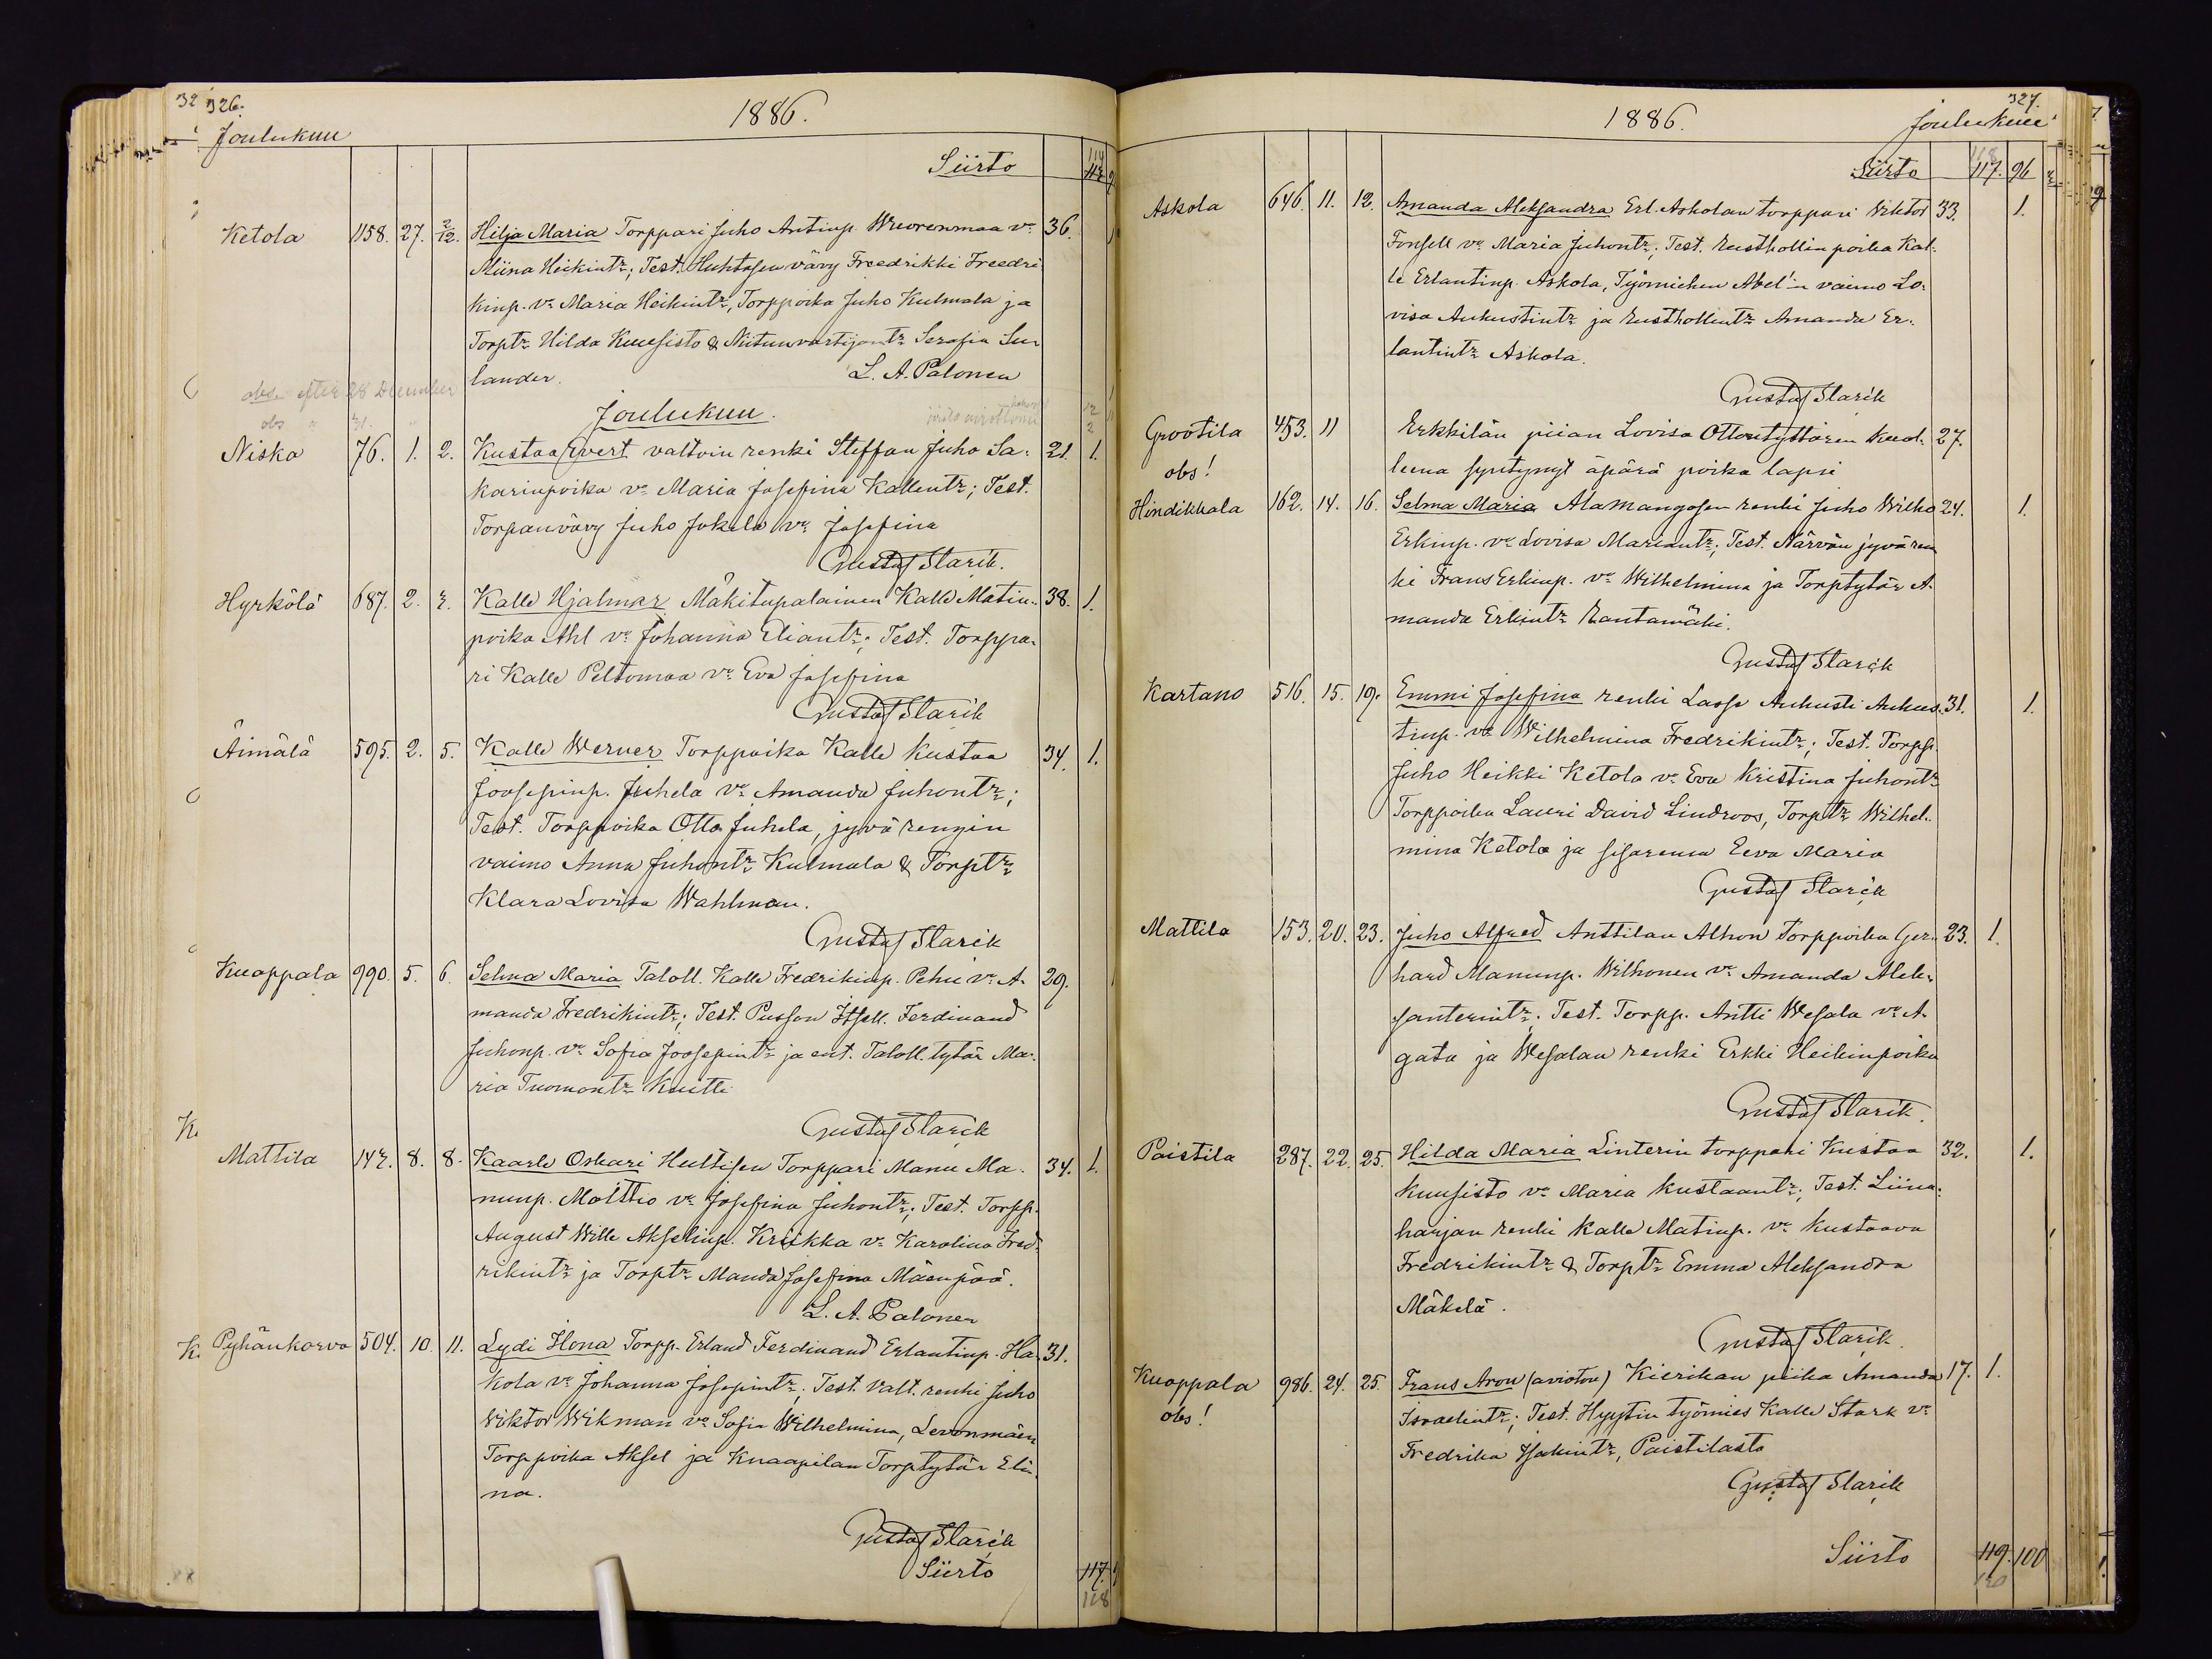 326.
1886.
Joulukuu
Siirto
Ketola 1158. 27. 2/12. Hilja Maria Torppari Juho Antinp. Wuorenmaa vo 36.
Miina Heikintr; Test. Huhtasen vävy Freedrikki Freedri
kinp. vo Maria Heikintr, Torppoika Juho Kulmala ja
Torptr Hilda Kuusisto & Niitunvartijantr Serafia Su-
lander. L. A. Palonen
obs. efter 28 December
Joulukuu.
Niska 76. 1. 2. Kustaa Evert valtvin renki Steffan Juho Sa- 21. 1.
karinpoika vo Maria Josefina Kallentr; Test.
Torpanvävy Juho Jokela vo Josefina
Gustaf Starik.
Hyrkölä 687. 2. 3. Kalle Hjalmar Mäkitupalainen Kalle Matin- 38. 1.
poika Ahl vo Johanna Eliantr; Test. Torppa-
ri Kalle Peltomaa vo Eva Josefina
Gustaf Starik
Äimälä 595. 2. 5. Kalle Werner Torppoika Kalle Kustaa 34. 1.
Joosepinp. Juhela vo Amanda Juhontr;
Test. Torppoika Otto Juhela, jyvä rengin
vaimo Anna Juhontr Kulmala & Torptr
Klara Lovisa Wahlman.
Gustaf Starik
Kuoppala 990. 5. 6. Selma Maria Taloll. Kalle Fredrikinp. Pehu vo A- 29.
manda Fredrikintr; Test. Pusson Itsell. Ferdinand
Juhonp. vo Sofia Joosepintr ja ent. Taloll. tytär Ma-
ria Tuomontr Knutti
Gustaf Starik
Mattila 143. 8. 8. Kaarle Oskari Huttisen Torppari Manu Ma- 34. 1.
nunp. Mälttiö vo Josefina Juhontr; Test. Torpp.
August Wille Akselinp. Kriikka vo Karolina Fred-
rikintr ja Torptr Manda Josefina Mäenpää.
L. A. Palonen
Pyhänkorva 504. 10. 11. Lydi Ilona Torpp. Erland Ferdinand Erlantinp. Ha- 31.
kola vo Johanna Josepintr; Test. Valt. renki Juho
Viktor Wikman vo Sofia Wilhelmina, Levonmäen
Torppoika Aksel ja Knaapilan Torptytär Elii-
na.
Gustaf Starik
Siirto 117.
118
327.
1886.
Joulukuu
Siirto 117. 96
118
Askola 646. 11. 12. Amanda Aleksandra Erl. Askolan torppari Viktor 33. 1.
Fonsell vo Maria Juhontr; Test. Rusthollin poika Kal-
le Erlantinp. Askola, Työmiehen Abel'in vaimo Lo-
visa Aukustintr ja Rusthollintr Amanda Er-
lantintr Askola.
Gustaf Starik
Grootila 453. 11 Erkkilän piian Lovisa Ottontyttären kuol- 27.
obs! leena syntynyt äpärä poika lapsi
Hindikkala 162. 14. 16. Selma Maria Alamangosen renki Juho Wilho 24. 1.
Erkinp. vo Lovisa Mariantr; Test. Närvän jyvären
ki Frans Erkinp. vo Wilhelmina ja Torptytär A-
manda Erkintr Rantamäki.
Gustaf Starik
Kartano 516. 15. 19. Emmi Josefina renki Lasse Aukusti Aukus- 31. 1.
tinp. vo Wilhelmina Fredrikintr; Test. Torpp.
Juho Heikki Ketola vo Eva Kristina Juhontr
Torppoika Lauri David Lindroos, Torptr Wilhel-
mina Ketola ja sisarensa Eeva Maria
Gustaf Starik
Mattila 153. 20. 23. Juho Alfred Anttilan Alhon Torppoika Ger- 23. 1.
hard Manunp. Wilhonen vo Amanda Alek-
santerintr; Test. Torpp. Antti Wesala vo A-
gata ja Wesalan renki Erkki Heikinpoika
Gustaf Starik.
Paistila 287. 22. 25. Hilda Maria Linterin torppari Kustaa 32. 1.
Kuusisto vo Maria Kustaantr; Test. Liina-
harjan renki Kalle Matinp. vo Kustaava
Fredrikintr & Torptr Emma Aleksandra
Mäkelä.
Gustaf Starik.
Kuoppala 986. 24. 25. Frans Aron (avioton) Kierikan piika Amanda 17. 1.
obs! Israelintr; Test. Hyytin työmies Kalle Stark vo
Fredrika Isakintr, Paistilasta
Gustaf Starik
Siirto 119. 100
120